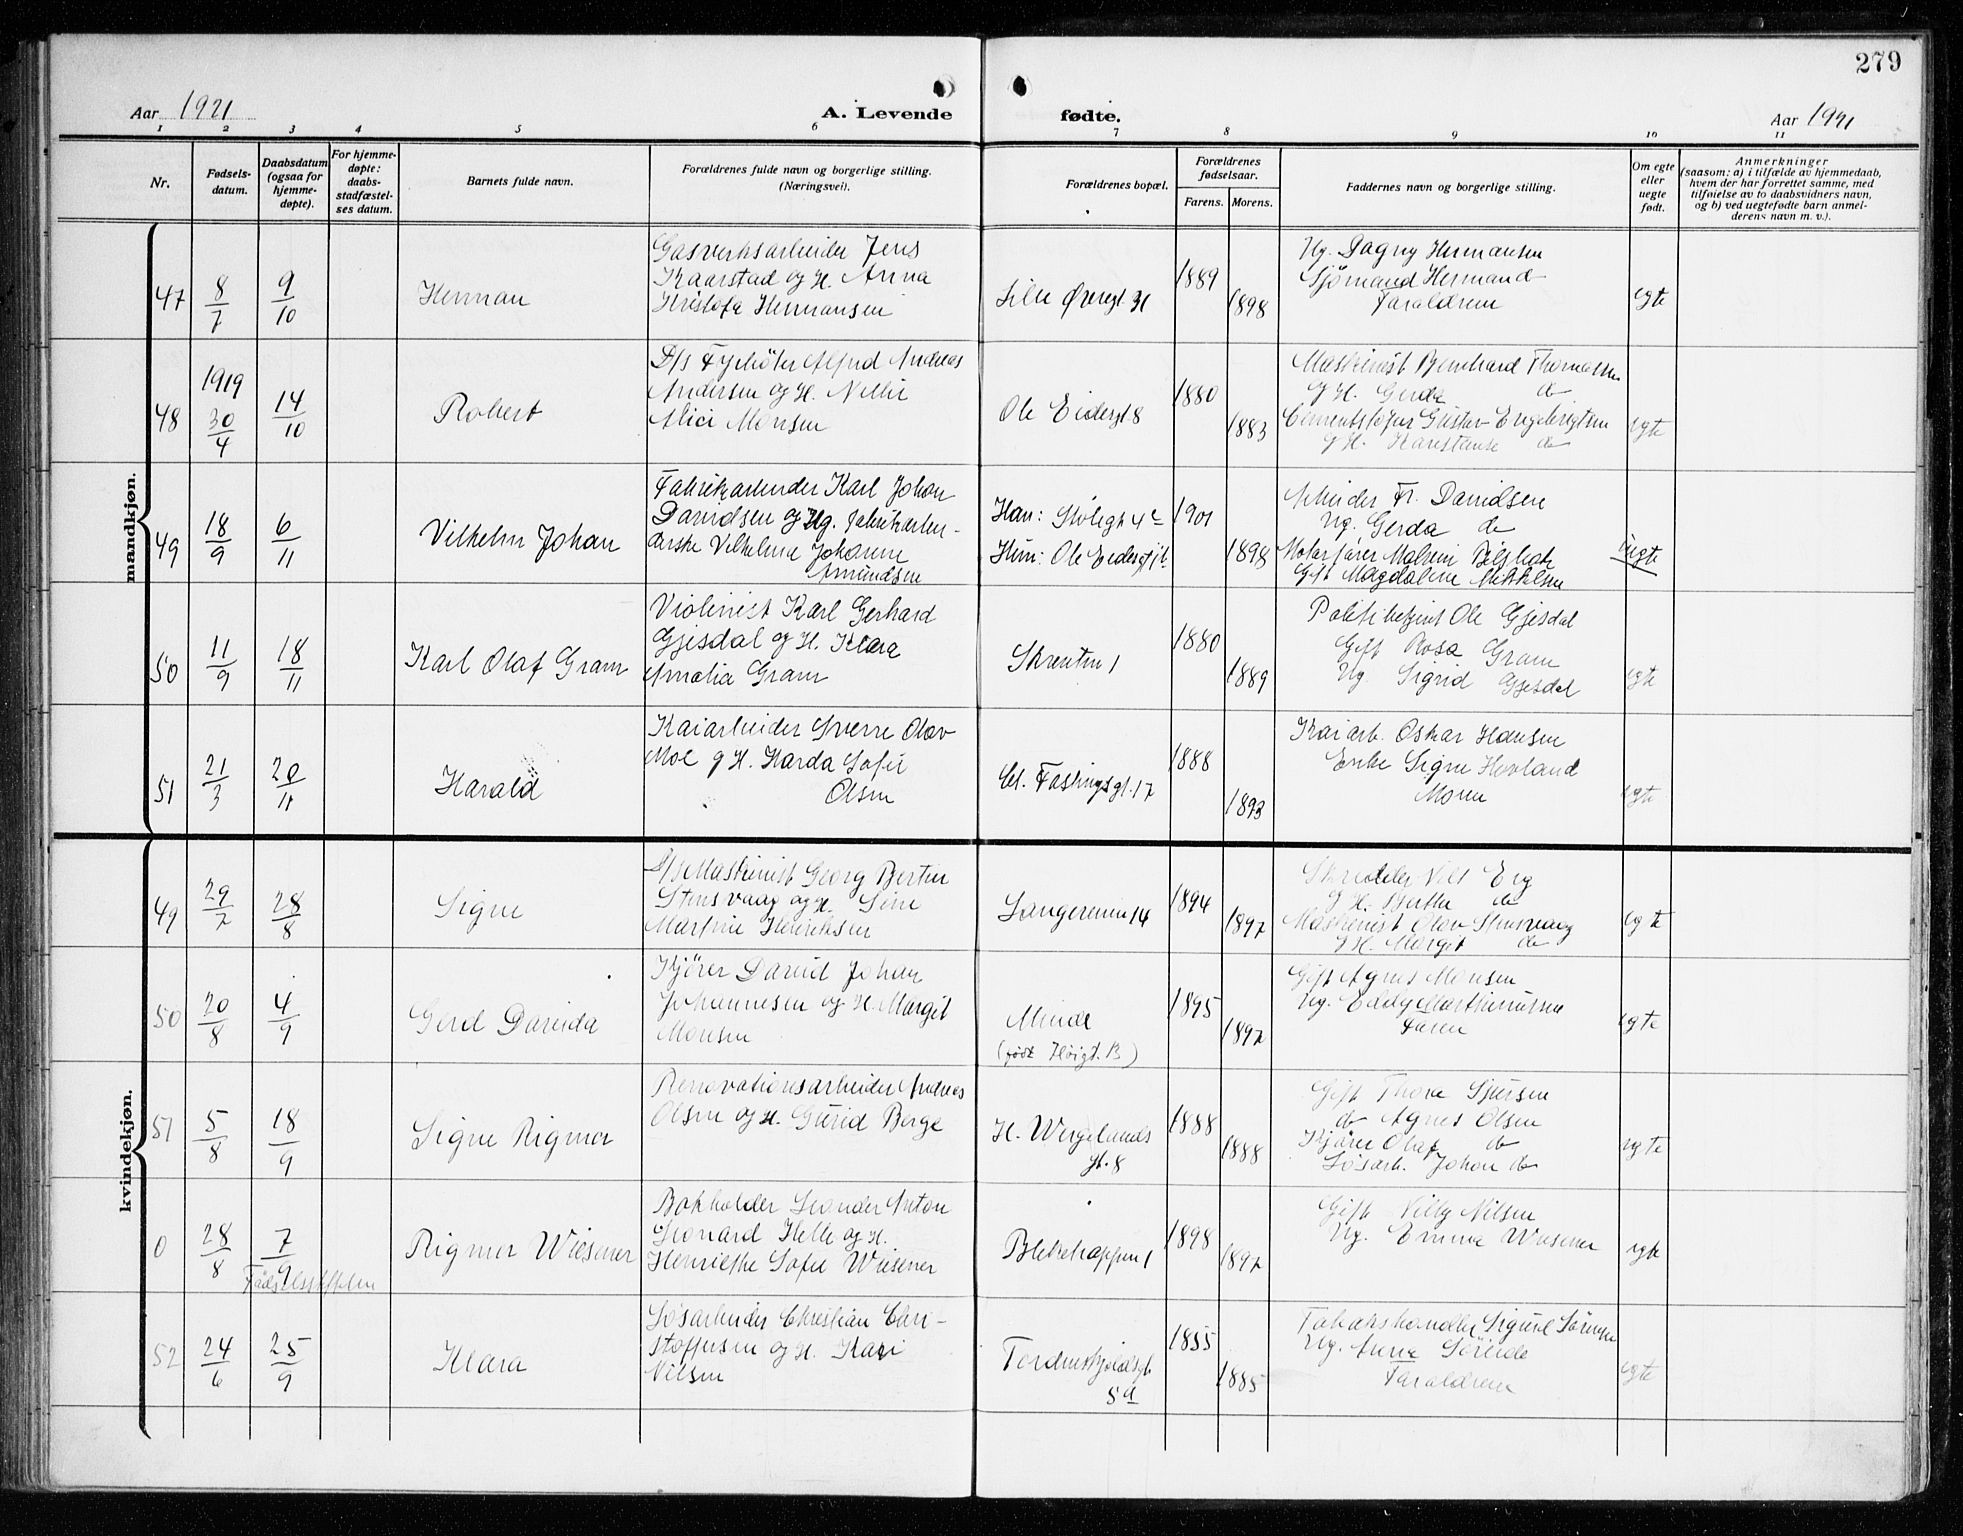 279
Aar 1921
A. Levende
fødte.
Aar 1921
1 2 3 4 5 6 7 8 9 10 11
Nr.
Fødsels-
datum.
Daabsdatum
(ogsaa for
hjemme-
døpte).
For hjemme-
døpte:
daabs-
stadfæstel-
ses datum.
Barnets fulde navn.
Forældrenes fulde navn og borgerlige stilling.
(Næringsvei).
Forældrenes bopæl.
Forældrenes
fødselsaar.
Farens. Morens.
Faddernes navn og borgerlige stilling.
Om egte
eller
uegte
født.
Anmerkninger
(saasom: a) i tilfælde av hjemmedaab,
hvem der har forrettet samme, med
tilføielse av to daabsvidners navn,
og b) ved uegtefødte barn anmel-
derens navn m. v.).
mandkjøn.
47 8/7 9/10 Herman
Gasverksarbeider Jens
Kaarstad og H. Anna
Kristofa Hermansen
Lille Øvregt 31
1889 1898
Ug. Dagny Hermansen
Sjømand Hermand do
Faraldrene
egte
48 1919 30/4 14/10 Robert
D/s Fyrbøter Alfred Andreas
Andersen og H. Nellie
Alice Monsen
Ole Eidesgt 8
1880 1883
Maskinist Bernhard Thomassen
og H. Gerda do
Cementstøper Gustav Engebrigtsen
og H. Konstanse do
egte
49 18/9 6/11 Vilhelm Johan
Fabrikarbeider Karl Johan
Davidsen og Ug. fabrikarbei-
derske Vilhelmine Johanne
Amundsen
Han: Stølegt 4c
Hun: Ole Eidesgt 1b
1901 1898
Arbeider Fr. Davidsen
Ug. Gerda do
Gift Magdalene Mikkelsen
uegte
50 11/9 18/11 Karl Olaf Gram
Violinist Karl Gerhard
Gjesdal og H. Klara
Amalia Gram
Skrenten 1
1880 1889
Politibetjent Ole Gjesdal
Gift Rosa Gram
Ug. Sigrid Gjesdal
egte
51 21/3 20/11 Harald
Kaiarbeider Sverre Olav
Moe og H. Harda Sofie
Olsen
Cl. Fastingsgt. 17
1888 1893
Kaiarb. Oskar Hansen
Enke Signe Hovland
Moren
egte
kvindekjøn.
49 29/7 28/8 Signe
D/s Maskinist Georg Bertin
Stensvaag og H. Sine
Martine Henriksen
Langereinen 14
1894 1897
Skredder Nils Eng
og H. Berthe do
Maskinist Olav Stensvaag
og H. Margit do
egte
50 20/8 4/9 Gerd Davida
Kjører David Johan
Johannesen og H. Margit
Monsen
Minde
(født Høigt. B)
1895 1897
Gift Agnes Monsen
Ug. Eddy Marthinussen
Faren
egte
51 5/8 18/9 Signe Rigmor
Renovationsarbeider Andreas
Olsen og H. Gurid Berge
H. Wergelands
gt. 8
1888 1888
Gift Thora Sjursen
do Agnes Olsen
Kjører Olaf do
Løsarb. Johan do
egte
0 28/8 7/9 Rigmor Wiesener
Fødselsstiftelsen
Bokholder Leander Anton
Leonard Helle og H.
Henriethe Sofie Wiesener
Blekehappen 1
1898 1897
Gift Villy Nilsen
Ug. Emma Wiesener
egte
52 24/6 25/9 Klara
Løsarbeider Christian Chri-
stoffersen og H. Kari
Nilsen
Tordenskjoldsgt
5a
1855 1885
Tobakshandler Sigurd Sørensen
Ug. Anna Søreide
Faraldrene
egte